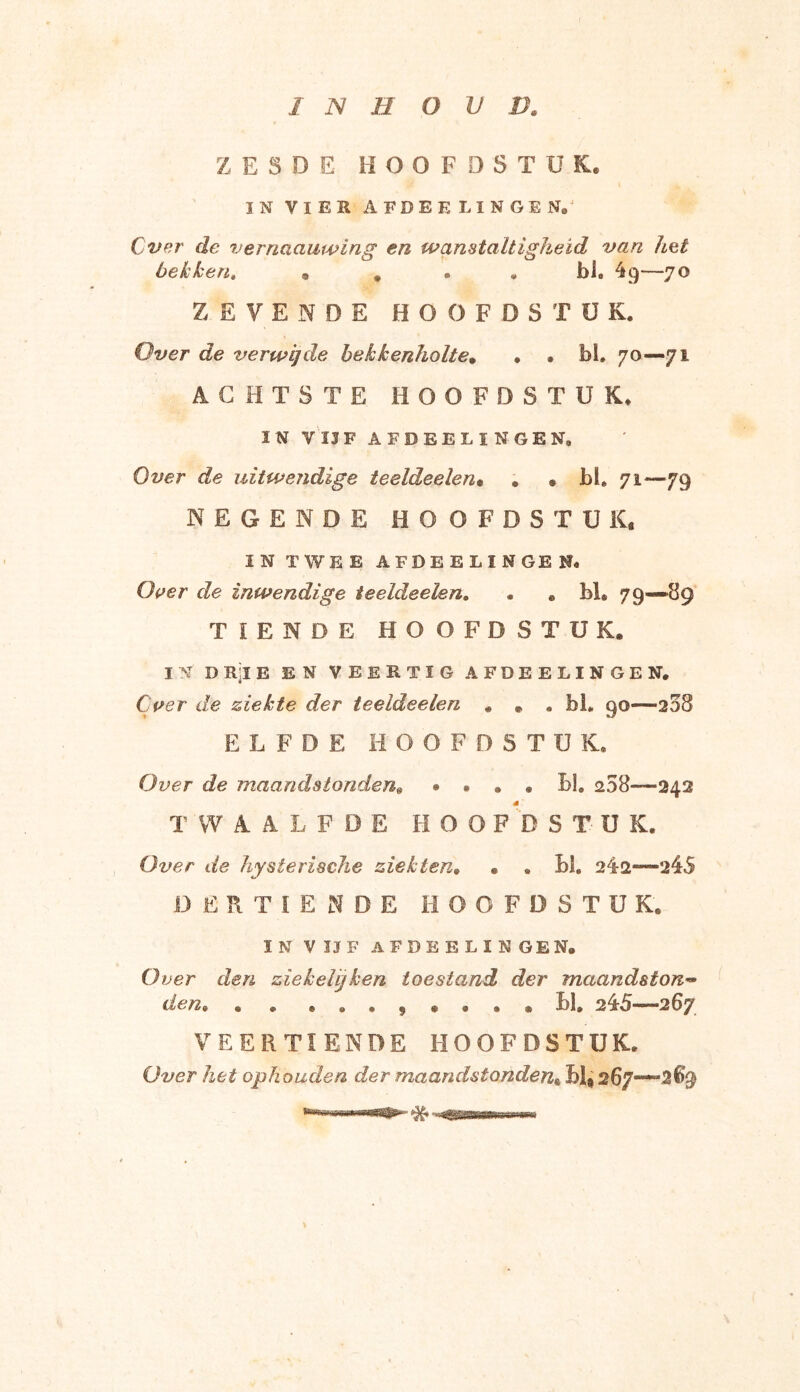 INHOUD.
ZESDE HOOFDSTUK.
IN VIER AFDEELINGEN.
Over de vernaauwing en wanstaltigheid van het
bekken. . . . . bl. 49—70
ZEVENDE HOOFDSTUK.
Over de verwijde bekkenholte. . . bl. 70—71
ACHTSTE HOOFDSTUK.
IN VIJF AFDEELINGEN.
Over de uitwendige teeldeelen. . . bl. 71—79
NEGENDE HOOFDSTUK.
IN TWEE AFDEELINGEN.
Over de inwendige teeldeelen. . . bl. 79—89
TIENDE HOOFDSTUK.
IN DRIE EN VEERTIG AFDEELINGEN.
Over de ziekte der teeldeelen . . . bl. 90—238
ELFDE HOOFDSTUK.
Over de maandstonden. . . . . bl. 238—242
TWAALFDE HOOFDSTUK.
Over de hysterische ziekten. . . bl. 242—245
DERTIENDE HOOFDSTUK.
IN VIJF AFDEELINGEN.
Over den ziekelijken toestand der maandston-
den. . . . . . , . . . . . bl. 245—267
VEERTIENDE HOOFDSTUK.
Over het ophouden der maandstonden. bl. 267—269